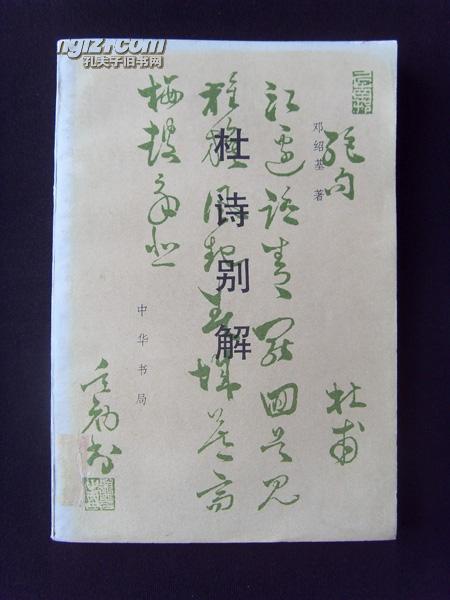 孔夫子旧书网
绝句 杜甫
江边踏青罢回首见
旌旗风起春城暮高
楼鼓角悲
邓绍基 著
杜诗别解
中华书局